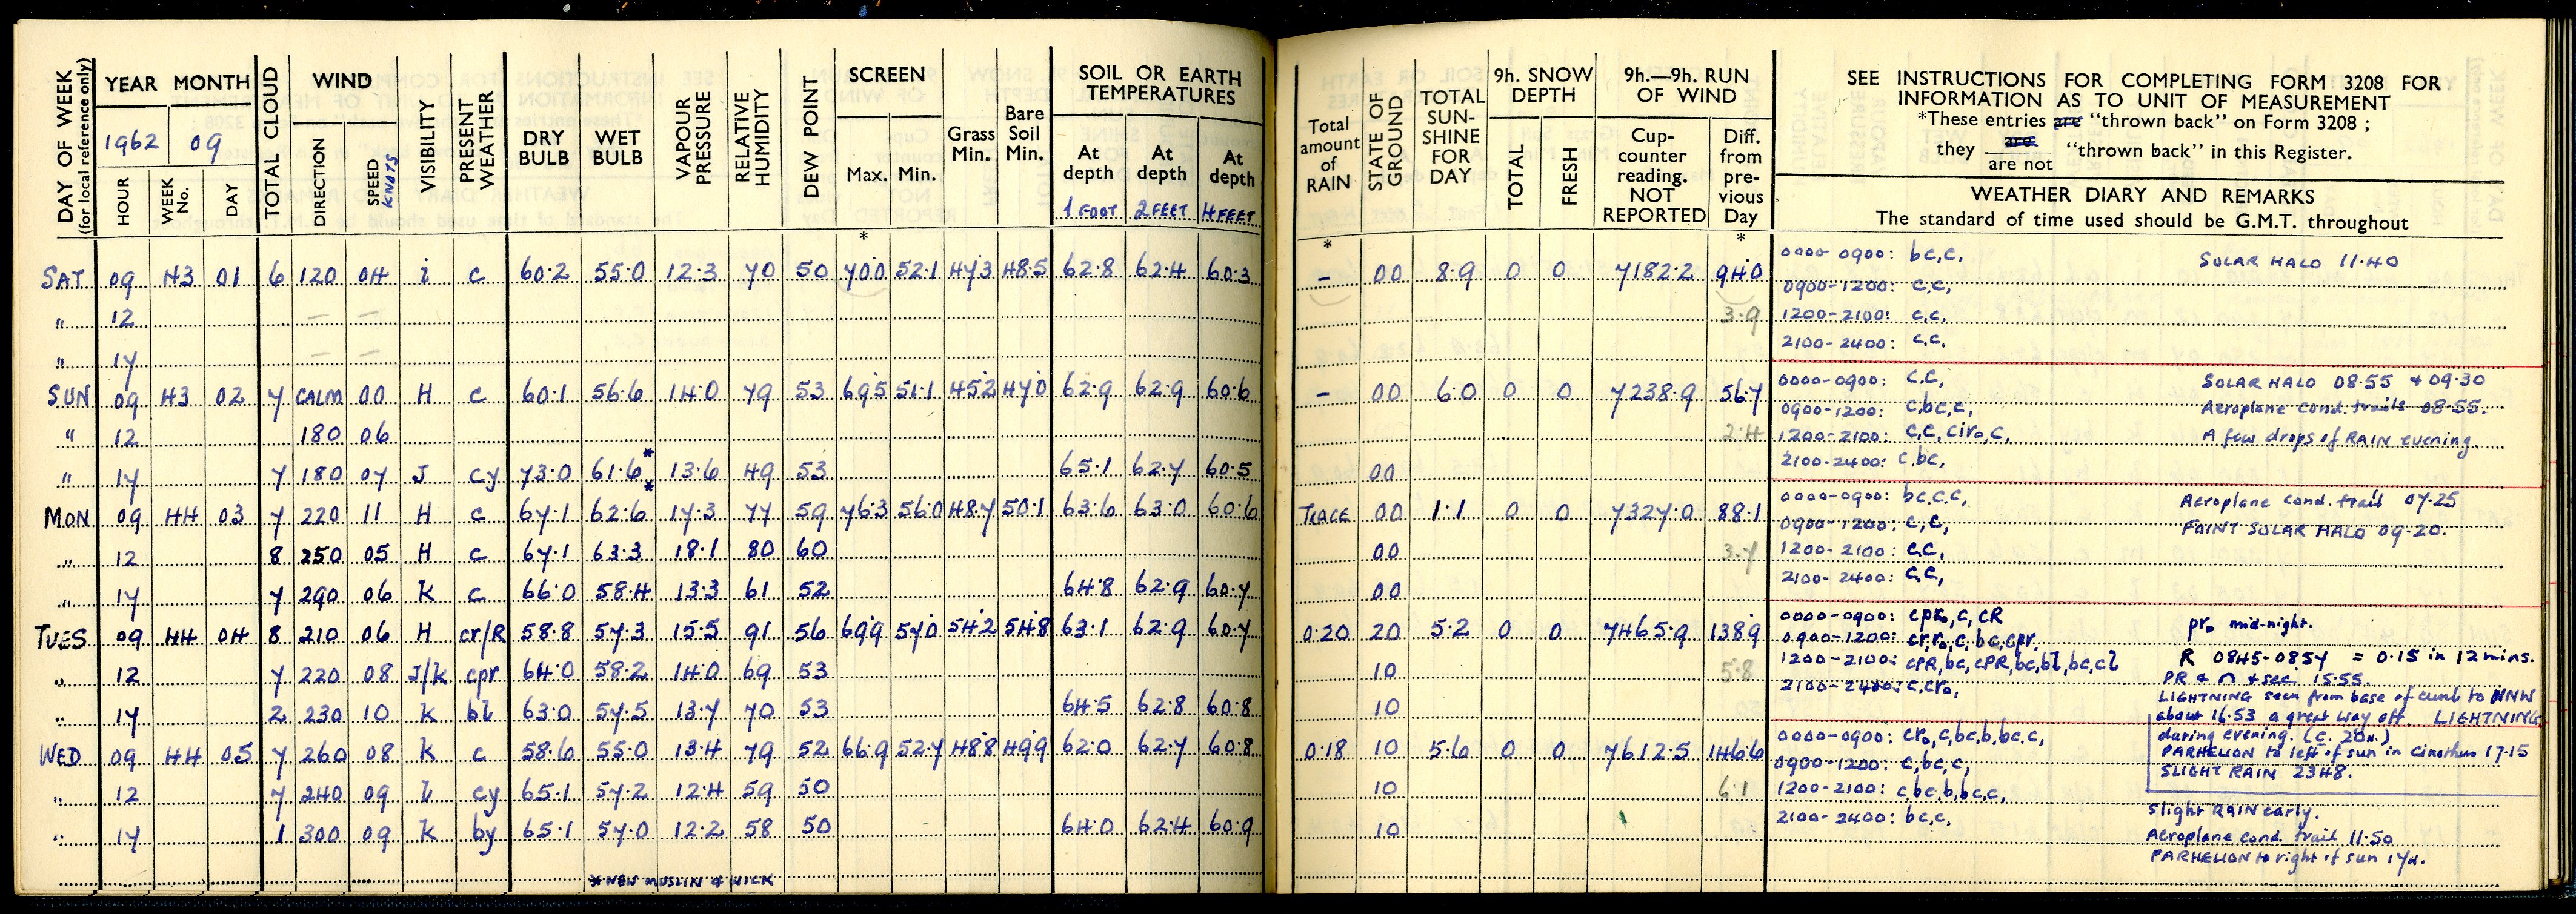 DAY OF WEEK (for local reference only)
YEAR MONTH
1962 09
HOUR WEEK No. DAY
TOTAL CLOUD
WIND
DIRECTION SPEED KNOTS
VISIBILITY
PRESENT WEATHER
DRY BULB WET BULB
VAPOUR PRESSURE
RELATIVE HUMIDITY
DEW POINT
SCREEN
Max. Min.
*
Grass Min.
Bare Soil Min.
SOIL OR EARTH TEMPERATURES
At depth At depth At depth
1 FOOT 2 FEET 4 FEET
SAT 09 43 01 6 120 04 i c 60.2 55.0 12.3 70 50 70.0 52.1 47.3 48.5 62.8 62.4 60.3
" 12 — —
" 17 — —
SUN 09 43 02 7 CALM 00 H c 60.1 56.6 14.0 79 53 69.5 51.1 45.2 47.0 62.9 62.9 60.6
" 12 180 06
" 17 7 180 07 J cy 73.0 61.6* 13.6 49 53 65.1 62.7 60.5
MON 09 44 03 7 220 11 H c 67.1 62.6* 17.3 77 59 76.3 56.0 48.7 50.1 63.6 63.0 60.6
" 12 8 250 05 H c 67.1 63.3 18.1 80 60
" 17 7 290 06 k c 66.0 58.4 13.3 61 52 64.8 62.9 60.7
TUES 09 44 04 8 210 06 H cr/R 58.8 57.3 15.5 91 56 69.9 57.0 54.2 54.8 63.1 62.9 60.7
" 12 7 220 08 J/k cpr 64.0 58.2 14.0 69 53
" 17 2 230 10 k bl 63.0 57.5 13.7 70 53 64.5 62.8 60.8
WED 09 44 05 7 260 08 k c 58.6 55.0 13.4 79 52 66.9 52.7 48.8 49.9 62.0 62.7 60.8
" 12 7 240 09 l cy 65.1 57.2 12.4 59 50
" 17 1 300 09 k by 65.1 57.0 12.2 58 50 64.0 62.4 60.9
* NEW MUSLIN & WICK
Total amount of RAIN
*
STATE OF GROUND
TOTAL SUN-SHINE FOR DAY
9h. SNOW DEPTH
TOTAL FRESH
9h.—9h. RUN OF WIND
Cup-counter reading. NOT REPORTED
Diff. from pre-vious Day
*
SEE INSTRUCTIONS FOR COMPLETING FORM 3208 FOR
INFORMATION AS TO UNIT OF MEASUREMENT
*These entries are "thrown back" on Form 3208 ;
they are / are not "thrown back" in this Register.
WEATHER DIARY AND REMARKS
The standard of time used should be G.M.T. throughout
– 00 8.9 0 0 7182.2 94.0
3.9
0000-0900: bc,c, SOLAR HALO 11.40
0900-1200: c,c,
1200-2100: c,c,
2100-2400: c,c,
– 00 6.0 0 0 7238.9 56.7
2.4
00
0000-0900: c,c, SOLAR HALO 08.55 & 09.30
0900-1200: c,bc,c, Aeroplane cond. trails 08.55.
1200-2100: c,c,ciro,c, A few drops of RAIN evening.
2100-2400: c,bc,
TRACE 00 1.1 0 0 7327.0 88.1
00 3.7
00
0000-0900: bc,c,c, Aeroplane cond. trail 07.25
0900-1200: c,c, FAINT SOLAR HALO 09.20.
1200-2100: c,c,
2100-2400: c,c,
0.20 20 5.2 0 0 7465.9 138.9
10 5.8
10
0000-0900: cpro,c,cR pro mid-night.
0900-1200: cr,ro,c,bc,cpr.
1200-2100: cPR,bc,cPR,bc,bl,bc,cl R 0845-0857 = 0.15 in 12 mins.
PR & 15.55.
2100-2400: c,cro,
LIGHTNING seen from base of cumb to NNW
about 16.53 a great way off. LIGHTNING
during evening. (c. 20H.)
PARHELION to left of sun in cirrothus 17.15
SLIGHT RAIN 2348.
0.18 10 5.6 0 0 7612.5 146.6
10 6.1
10
0000-0900: cro,c,bc,b,bc,c,
0900-1200: c,bc,c,
1200-2100: c,bc,b,bc,c,
2100-2400: bc,c,
Slight RAIN early.
Aeroplane cond. trail 11.50
PARHELION to right of sun 17H.